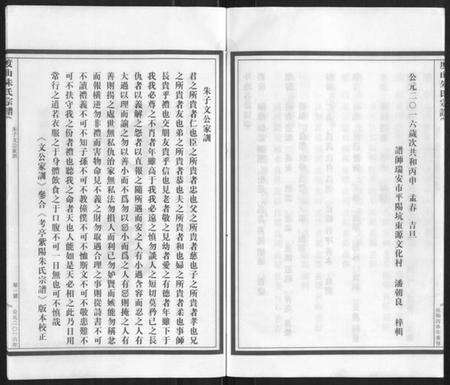 公元二〇一六歲次共和丙申 孟春 吉旦
譜師瑞安市平陽坑東源文化村 潘朝良 梓輯
朱子文公家訓
君之所貴者仁也臣之所貴者忠也父之所貴者慈也子之所貴者孝也兄
之所貴者友也弟之所貴者恭也夫之所貴者和也婦之所貴者柔也事師
長貴乎禮也交朋友貴乎信也見老者敬之見幼者愛之有德者年雖下于
我我必尊之不肖者年雖高于我我必遠之慎勿談人之短切莫矜己之長
仇者以義解之怨者以直報之隨所遇而安之人有小過含容而忍之人有
大過以理而諭之勿以善小而不為勿以惡小而為之人有惡則掩之人有
善則揚之處世無私仇治家無私法勿損人而利己勿妒賢而嫉能勿稱忿
而報橫逆勿非禮而害物命見不義之財勿取遇合理之事則從詩書不可
不讀禮義不可不知子孫不可不教僮僕不可不恤斯文不可不敬患難不
可不扶守我之份者禮也聽我之命者天也人能如是天必相之此乃日用
常行之道若衣服之于身體飲食之于口腹不可一日無也可不慎哉
《文公家訓》參合《考亭紫陽朱氏宗譜》版本校正
朱子文公家訓